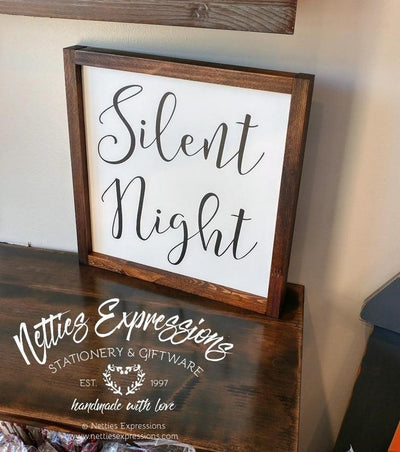 Silent
Night
Netties Expressions
STATIONERY & GIFTWARE
EST. 1997
handmade with love
© Netties Expressions
www.nettiesexpressions.com